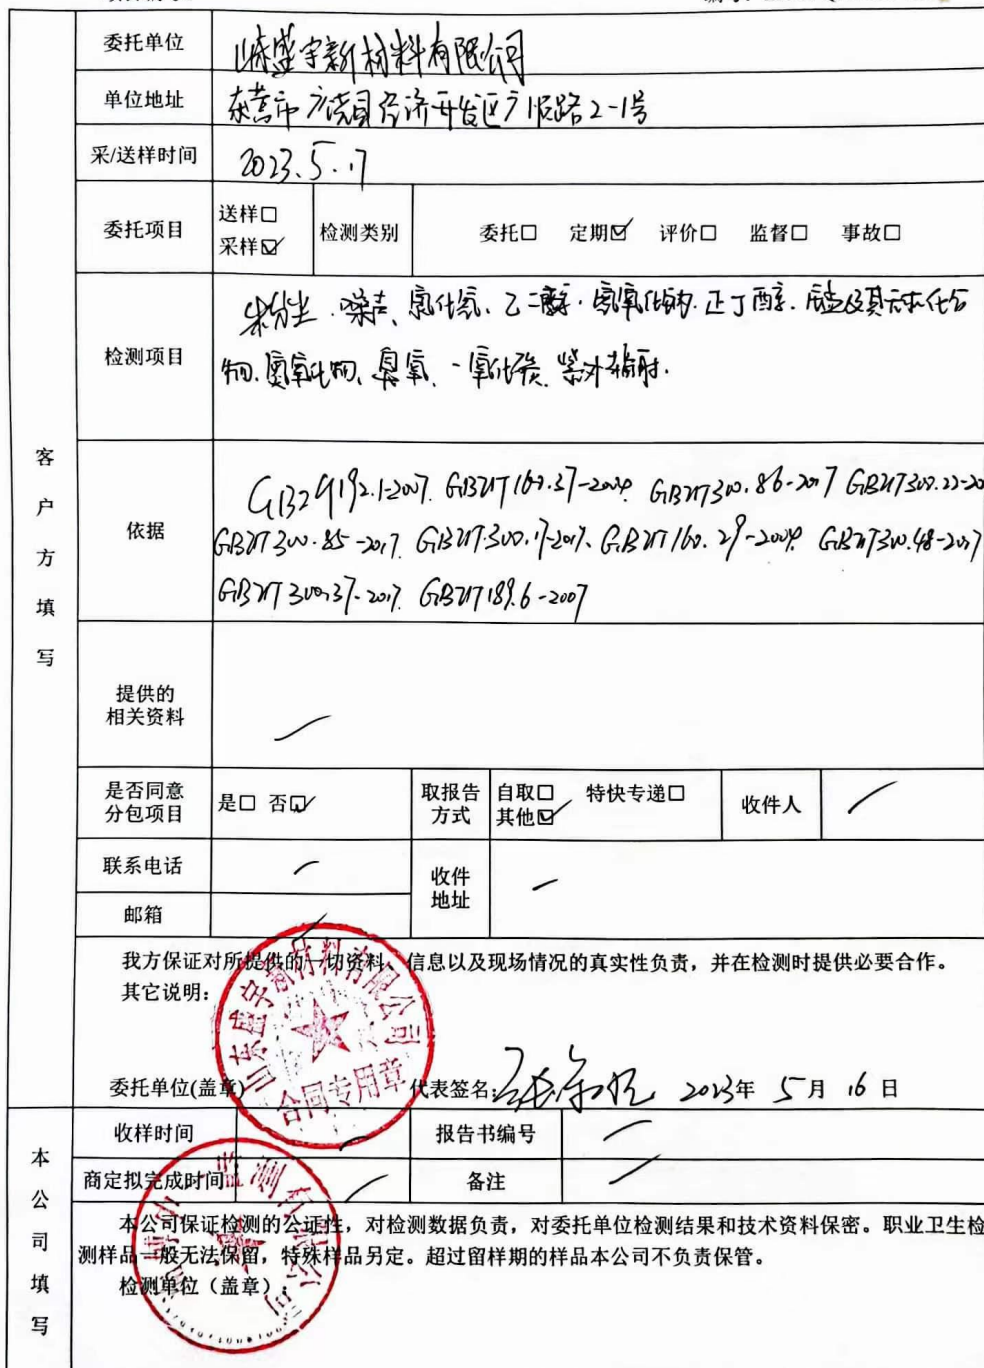 委托单位 山东盛宇新材料有限公司
单位地址 东营市广饶县经济开发区广顺路2-1号
采/送样时间 2023.5.17
委托项目 送样□ 采样☑ 检测类别 委托□ 定期☑ 评价□ 监督□ 事故□
检测项目 粉尘、噪声、氯化氢、乙二醇、氢氧化钠、正丁醇、锰及其无机化合
物、氮氧化物、臭氧、一氧化碳、紫外辐射.
依据 GBZ/T192.1-2007. GBZ/T160.37-2004. GBZ/T300.86-2017 GBZ/T300.22-20
GBZ/T300.85-2017. GBZ/T300.17-2017、GBZ/T160.29-2004. GBZ/T300.48-2017
GBZ/T300.37-2017. GBZ/T189.6-2007
客户方填写
提供的
相关资料
是否同意
分包项目 是□ 否☑ 取报告
方式 自取□ 特快专递□
其他☑ 收件人
联系电话 收件
地址
邮箱
我方保证对所提供的一切资料、信息以及现场情况的真实性负责，并在检测时提供必要合作。
其它说明：
山东盛宇新材料有限公司
合同专用章
委托单位(盖章) 代表签名: 2023年 5月 16日
收样时间 报告书编号
商定拟完成时间 备注
本公司填写
本公司保证检测的公证性，对检测数据负责，对委托单位检测结果和技术资料保密。职业卫生检
测样品一般无法保留，特殊样品另定。超过留样期的样品本公司不负责保管。
检测单位（盖章）